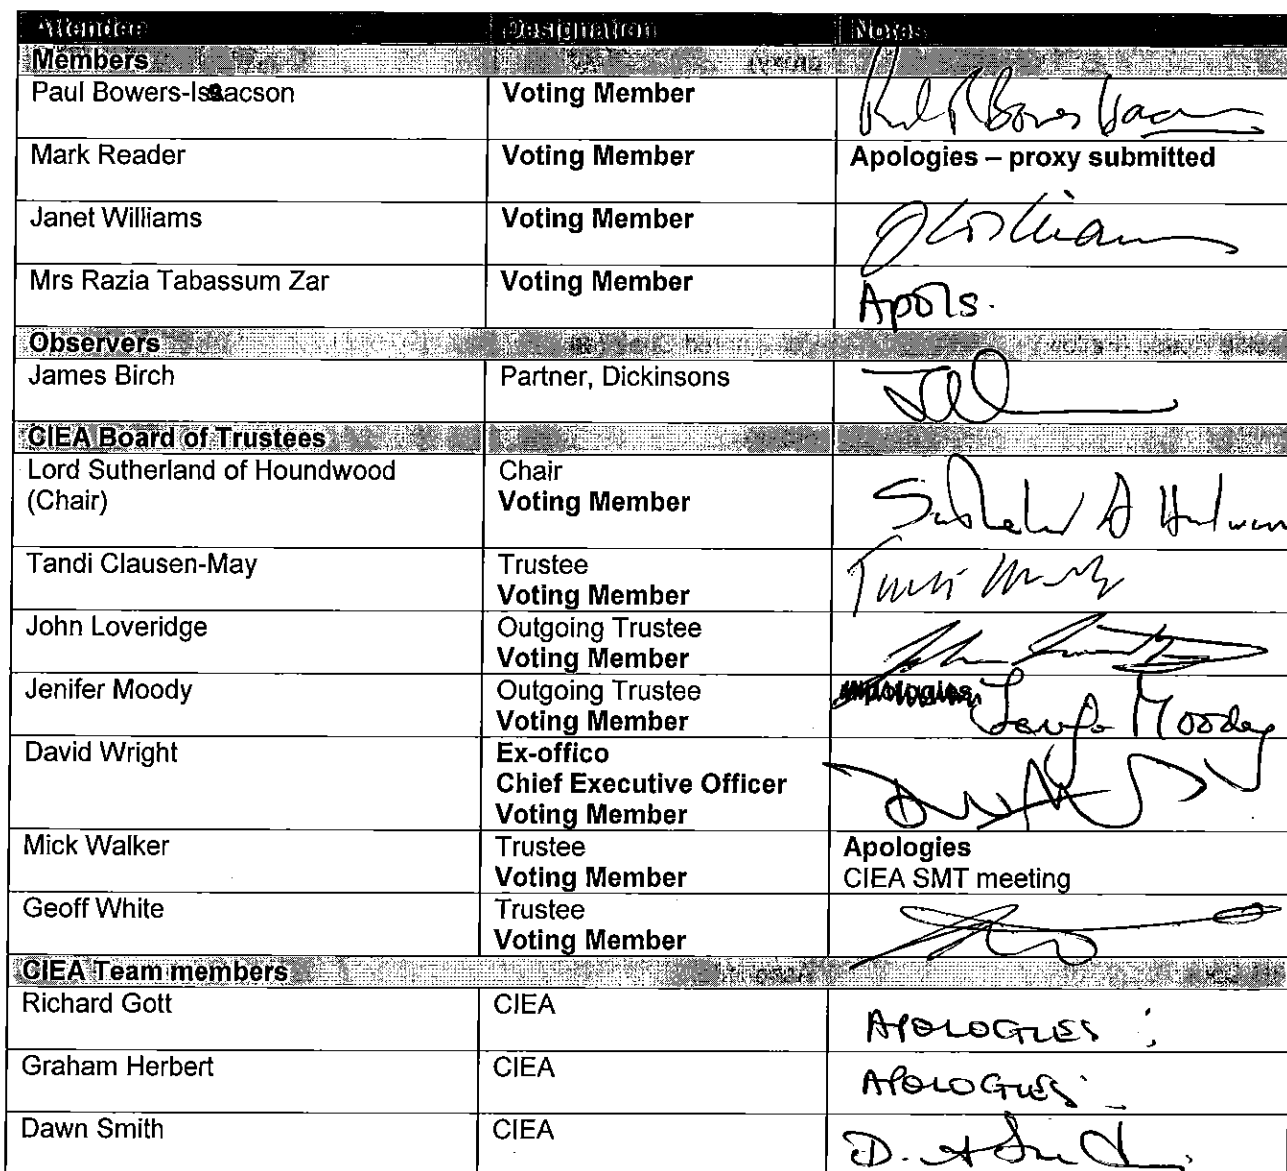 Attendee Designation Notes
Members
Paul Bowers-Isaacson Voting Member
Mark Reader Voting Member Apologies – proxy submitted
Janet Williams Voting Member JWilliams
Mrs Razia Tabassum Zar Voting Member Apols.
Observers
James Birch Partner, Dickinsons
CIEA Board of Trustees
Lord Sutherland of Houndwood Chair
(Chair) Voting Member
Tandi Clausen-May Trustee
Voting Member
John Loveridge Outgoing Trustee
Voting Member
Jenifer Moody Outgoing Trustee Apologies
Voting Member Moody
David Wright Ex-offico
Chief Executive Officer
Voting Member
Mick Walker Trustee Apologies
Voting Member CIEA SMT meeting
Geoff White Trustee
Voting Member
CIEA Team members
Richard Gott CIEA APOLOGIES :
Graham Herbert CIEA APOLOGIES:
Dawn Smith CIEA